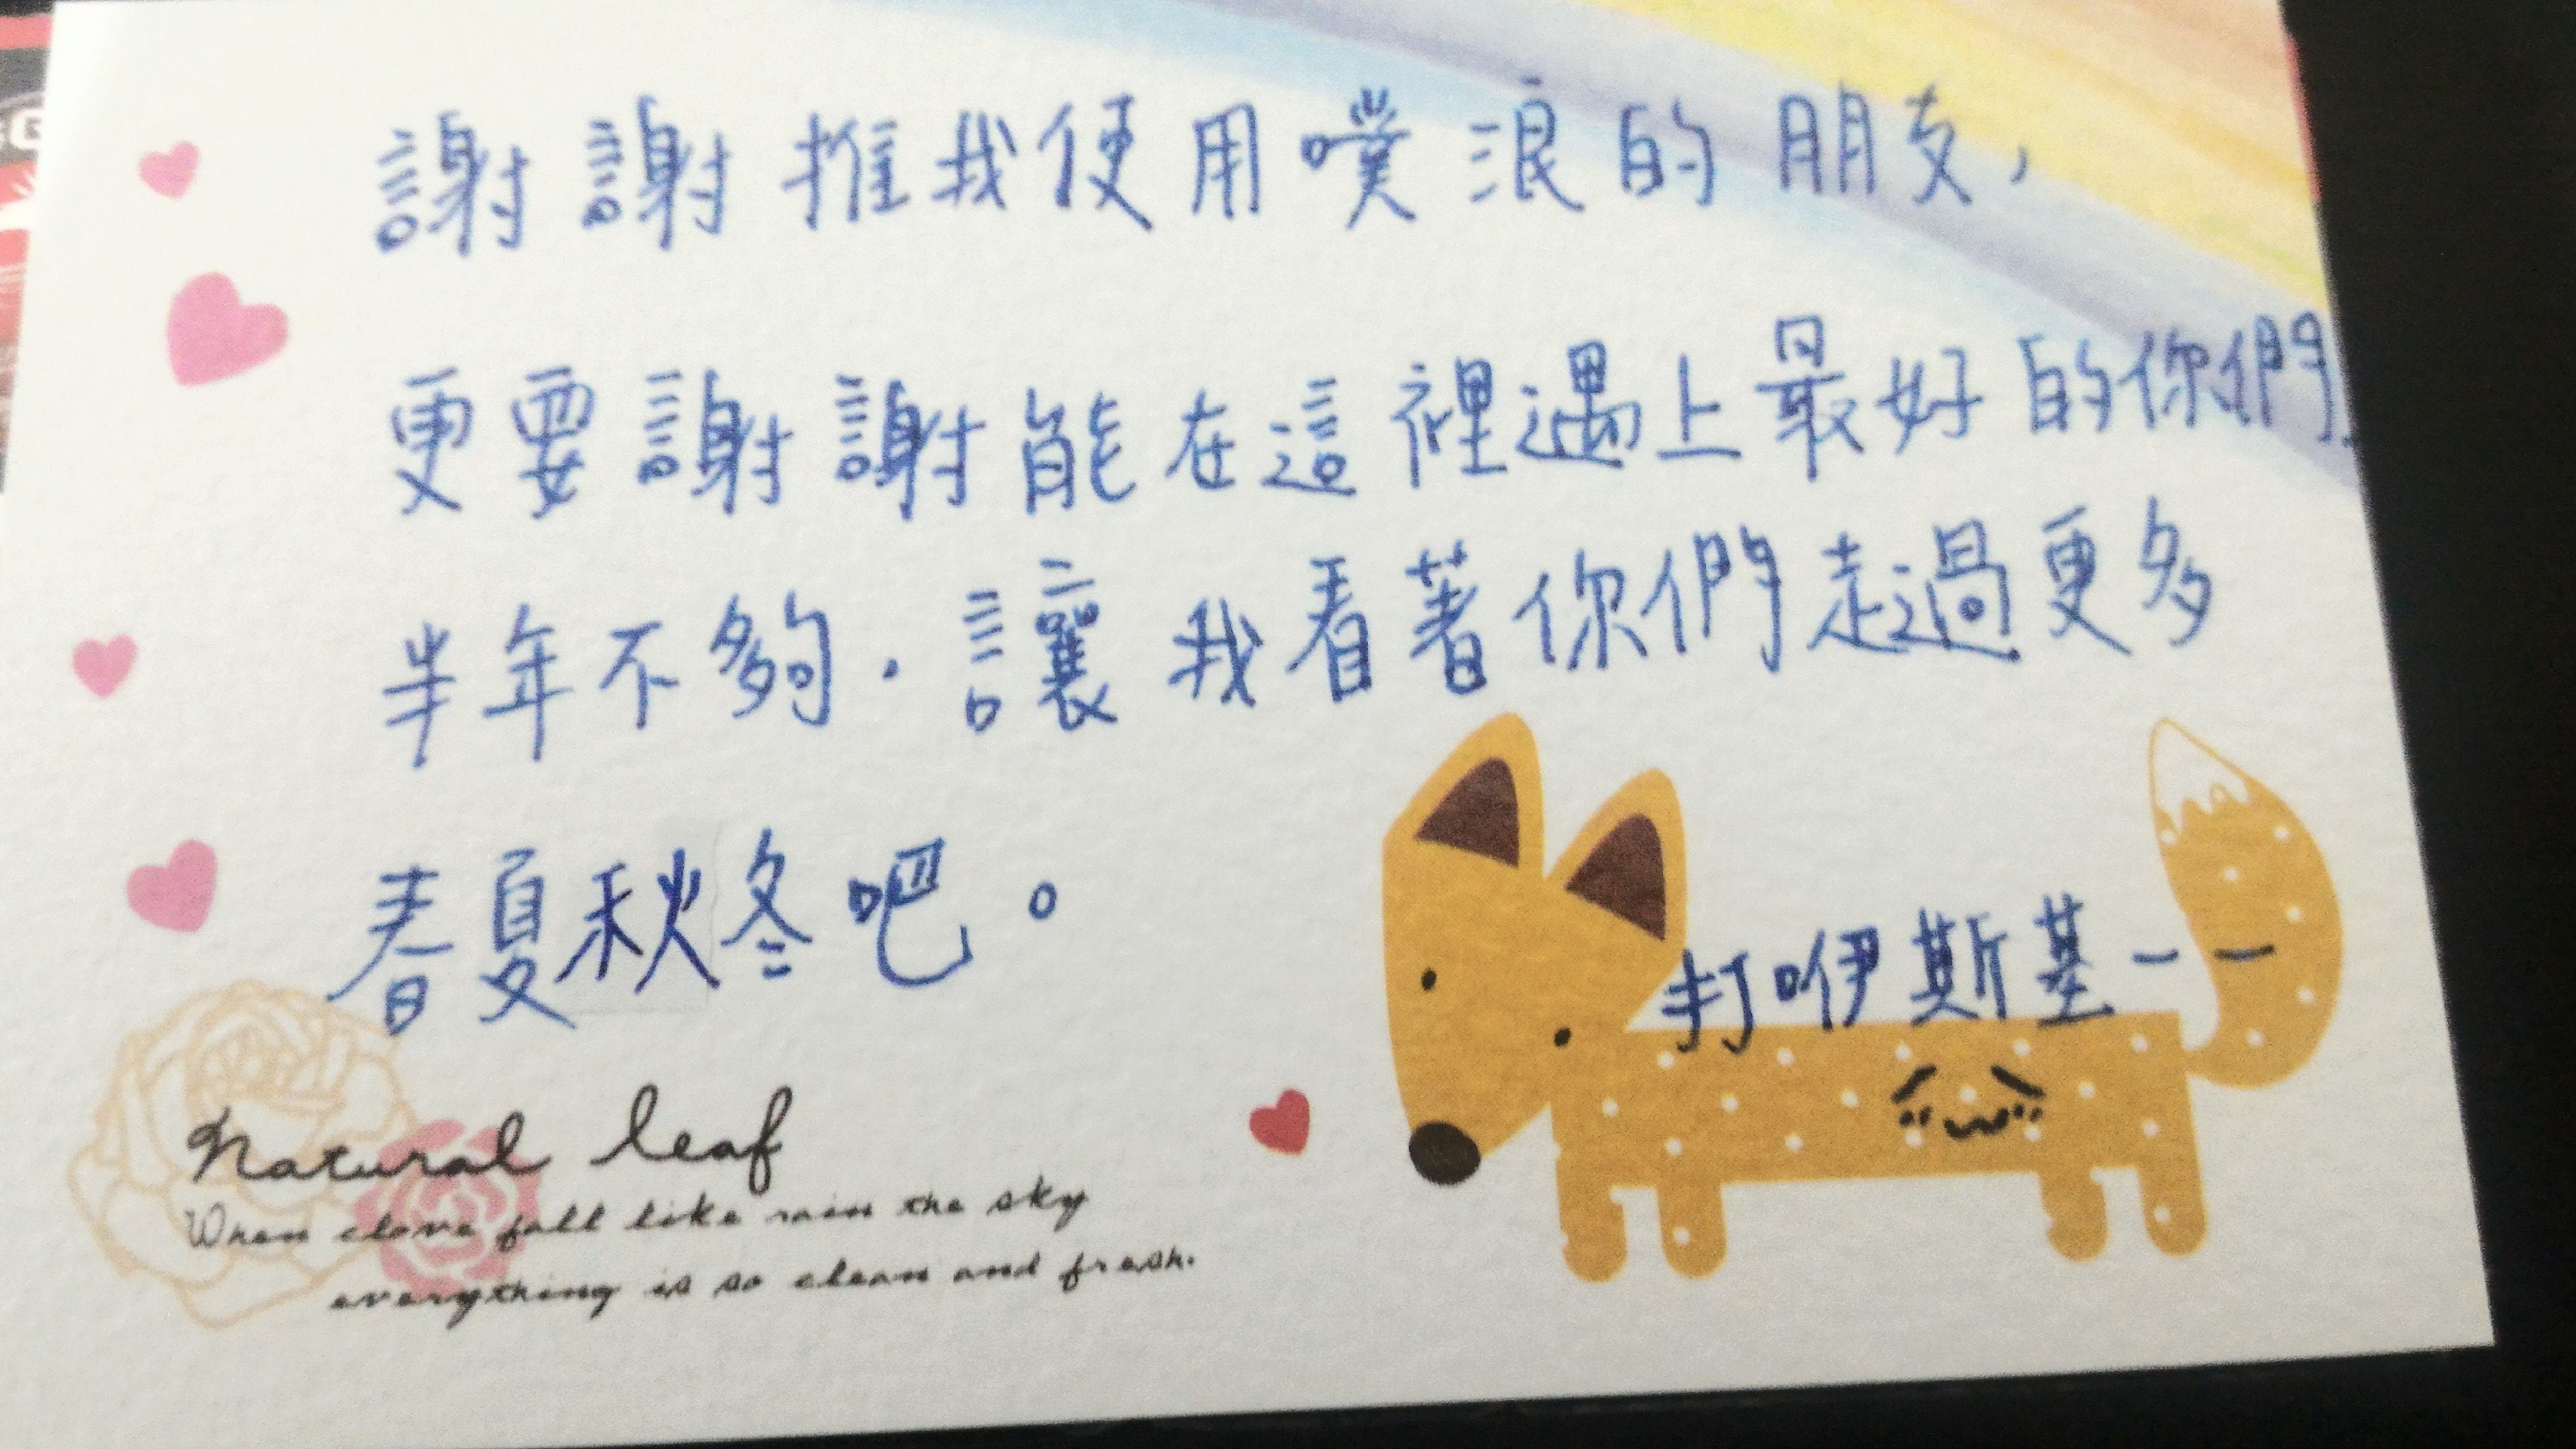 謝謝推我使用噗浪的朋友,
更要謝謝能在這裡遇上最好的你們
半年不夠.讓我看著你們走過更多
春夏秋冬吧。
打咿斯基——
natural leaf
When clove fall like rain the sky
everything is so clean and fresh.